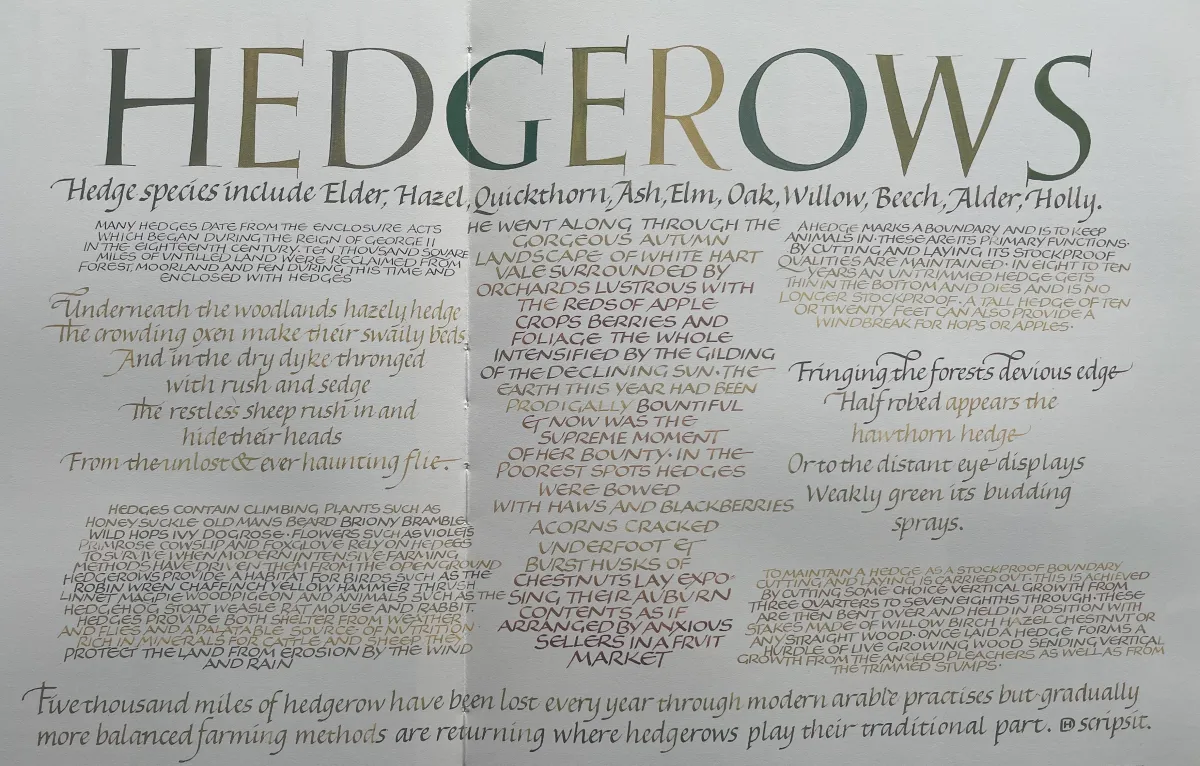 HEDGEROWS
Hedge species include Elder, Hazel, Quickthorn, Ash, Elm, Oak, Willow, Beech, Alder, Holly.
MANY HEDGES DATE FROM THE ENCLOSURE ACTS
WHICH BEGAN DURING THE REIGN OF GEORGE II
IN THE EIGHTEENTH CENTURY. TEN THOUSAND SQUARE
MILES OF UNTILLED LAND WERE RECLAIMED FROM
FOREST, MOORLAND AND FEN DURING THIS TIME AND
ENCLOSED WITH HEDGES
Underneath the woodlands hazely hedge
The crowding oxen make their swaily beds
And in the dry dyke thronged
with rush and sedge
The restless sheep rush in and
hide their heads
From the unlost & ever haunting flie.
HEDGES CONTAIN CLIMBING PLANTS SUCH AS
HONEYSUCKLE OLD MANS BEARD BRIONY BRAMBLE
WILD HOPS IVY DOGROSE · FLOWERS SUCH AS VIOLETS
PRIMROSE COWSLIP AND FOXGLOVE RELY ON HEDGES
TO SURVIVE WHEN MODERN INTENSIVE FARMING
METHODS HAVE DRIVEN THEM FROM THE OPEN GROUND
HEDGEROWS PROVIDE A HABITAT FOR BIRDS SUCH AS THE
ROBIN WREN CHAFFINCH YELLOW HAMMER THRUSH
LINNET MAGPIE WOODPIGEON AND ANIMALS SUCH AS THE
HEDGEHOG STOAT WEASLE RAT MOUSE AND RABBIT.
HEDGES PROVIDE BOTH SHELTER FROM WEATHER
AND FLIES AND A PALATABLE SOURCE OF NUTRITION
RICH IN MINERALS FOR CATTLE AND SHEEP THEY
PROTECT THE LAND FROM EROSION BY THE WIND
AND RAIN
HE WENT ALONG THROUGH THE
GORGEOUS AUTUMN
LANDSCAPE OF WHITE HART
VALE SURROUNDED BY
ORCHARDS LUSTROUS WITH
THE REDS OF APPLE
CROPS BERRIES AND
FOLIAGE THE WHOLE
INTENSIFIED BY THE GILDING
OF THE DECLINING SUN · THE
EARTH THIS YEAR HAD BEEN
PRODIGALLY BOUNTIFUL
& NOW WAS THE
SUPREME MOMENT
OF HER BOUNTY · IN THE
POOREST SPOTS HEDGES
WERE BOWED
WITH HAWS AND BLACKBERRIES
ACORNS CRACKED
UNDERFOOT &
BURST HUSKS OF
CHESTNUTS LAY EXPO
SING, THEIR AUBURN
CONTENTS AS IF
ARRANGED BY ANXIOUS
SELLERS IN A FRUIT
MARKET
A HEDGE MARKS A BOUNDARY AND IS TO KEEP
ANIMALS IN · THESE ARE ITS PRIMARY FUNCTIONS ·
BY CUTTING AND LAYING, ITS STOCKPROOF
QUALITIES ARE MAINTAINED · IN EIGHT TO TEN
YEARS AN UNTRIMMED HEDGE GETS
THIN IN THE BOTTOM AND DIES AND IS NO
LONGER STOCKPROOF · A TALL HEDGE OF TEN
OR TWENTY FEET CAN ALSO PROVIDE A
WINDBREAK FOR HOPS OR APPLES ·
Fringing the forests devious edge
Half robed appears the
hawthorn hedge
Or to the distant eye displays
Weakly green its budding
sprays.
TO MAINTAIN A HEDGE AS A STOCKPROOF BOUNDARY
CUTTING AND LAYING IS CARRIED OUT · THIS IS ACHIEVED
BY CUTTING SOME CHOICE VERTICAL GROWTH FROM
THREE QUARTERS TO SEVEN EIGHTHS THROUGH · THESE
ARE THEN BENT OVER AND HELD IN POSITION WITH
STAKES MADE OF WILLOW BIRCH HAZEL CHESTNUT OR
ANY STRAIGHT WOOD · ONCE LAID A HEDGE FORMS A
HURDLE OF LIVE GROWING WOOD SENDING VERTICAL
GROWTH FROM THE ANGLED PLEACHERS AS WELL AS FROM
THE TRIMMED STUMPS ·
Five thousand miles of hedgerow have been lost every year through modern arable practises but gradually
more balanced farming methods are returning where hedgerows play their traditional part. scripsit.